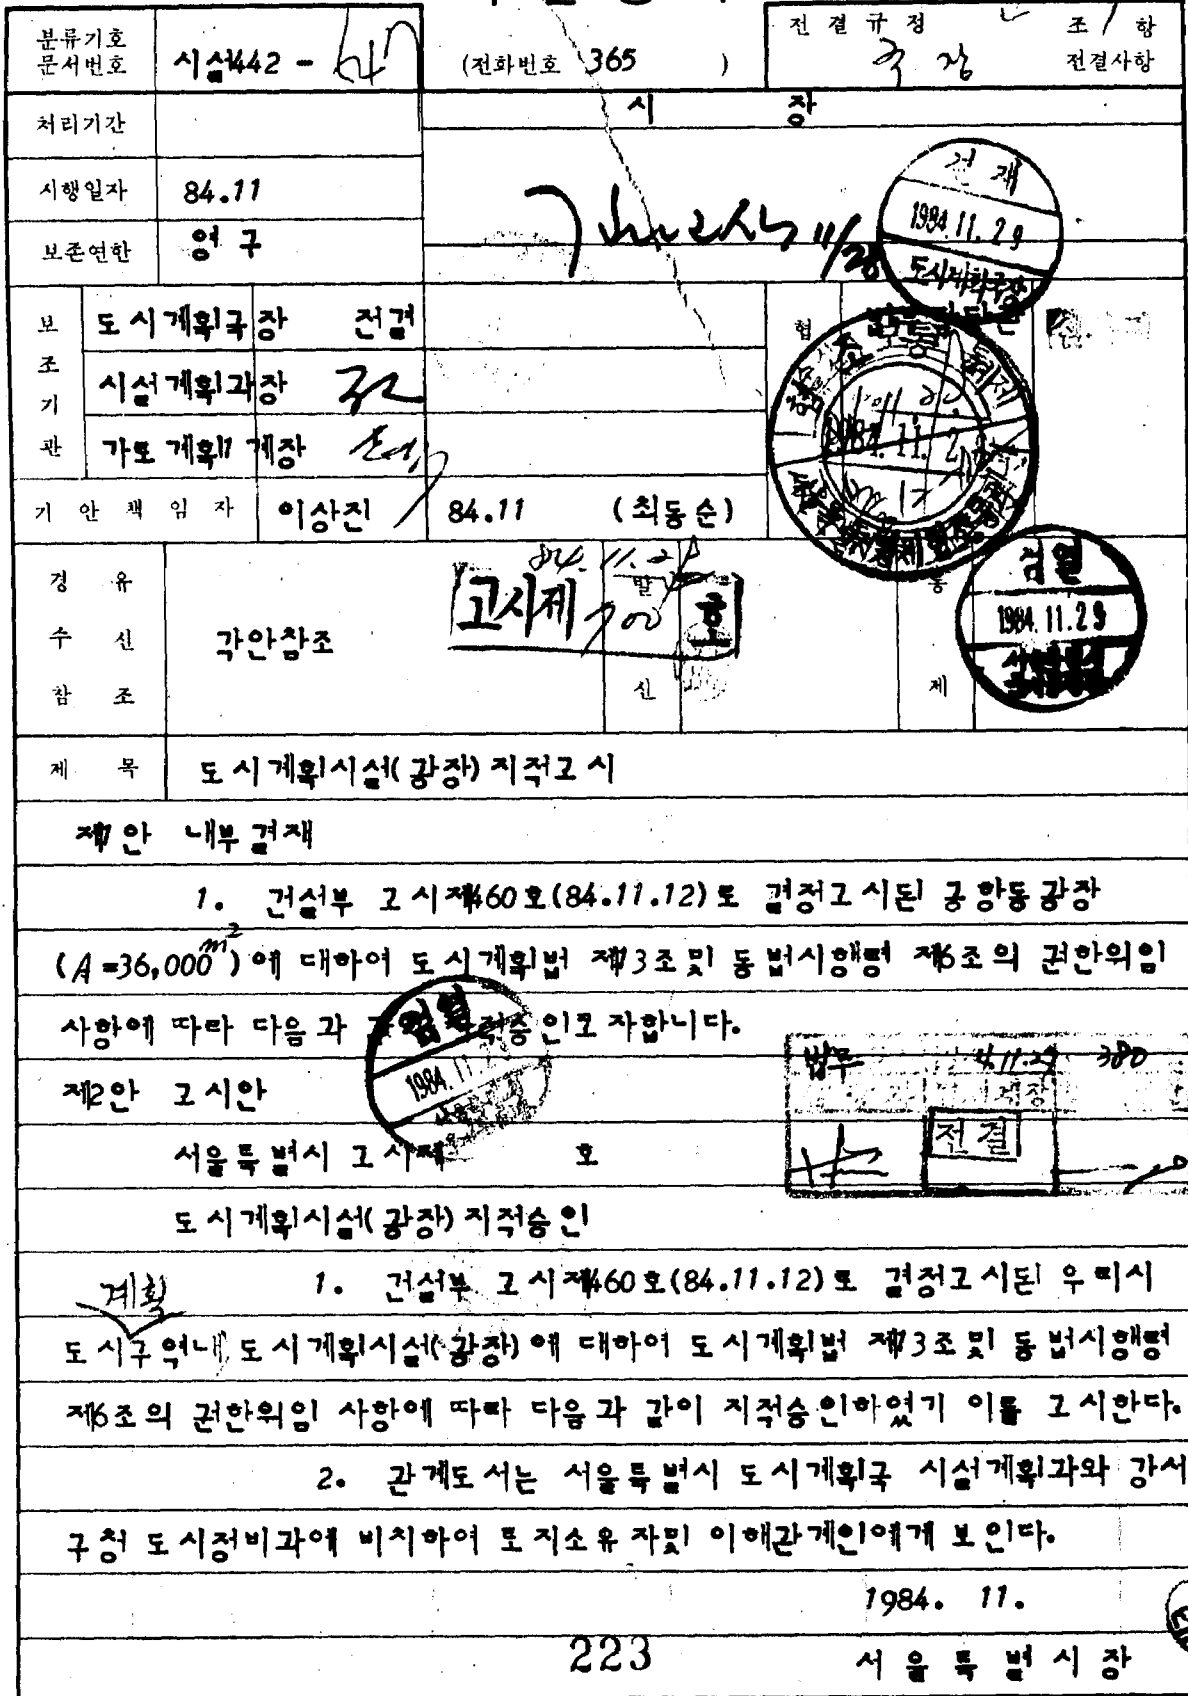 분류기호
문서번호 시설442 -
(전화번호 365 )
전결규정 조 항
국장 전결사항
처리기간
시 장
시행일자 84.11
보존연한 영구
11/28
결재
1984.11.29
도시계획국장
보조기관
도시계획국장 전결
시설계획과장
가로계획1계장
협
기안책임자 이상진 84.11 (최동순)
경유
수신
참조
각안참조
84.11.28
고시제 700 호
발
신
통
제
검열
1984.11.29
제 목 도시계획시설(광장)지적고시
제1안 내부결재
1. 건설부 고시제460호(84.11.12)로 결정고시된 공항동광장
(A=36,000m²)에 대하여 도시계획법 제13조및 동법시행령 제6조의 권한위임
사항에 따라 다음과 지적승인코자합니다.
검열
1984.11
법무 4.11.29 380
전결
제2안 고시안
서울특별시 고시제 호
도시계획시설(광장)지적승인
1. 건설부 고시제460호(84.11.12)로 결정고시된 우리시
계획
도시구역내 도시계획시설(광장)에 대하여 도시계획법 제13조및 동법시행령
제6조의 권한위임 사항에 따라 다음과 같이 지적승인하였기 이를 고시한다.
2. 관계도서는 서울특별시 도시계획국 시설계획과와 강서
구청 도시정비과에 비치하여 토지소유자및 이해관계인에게 보인다.
1984. 11.
서울특별시장
223